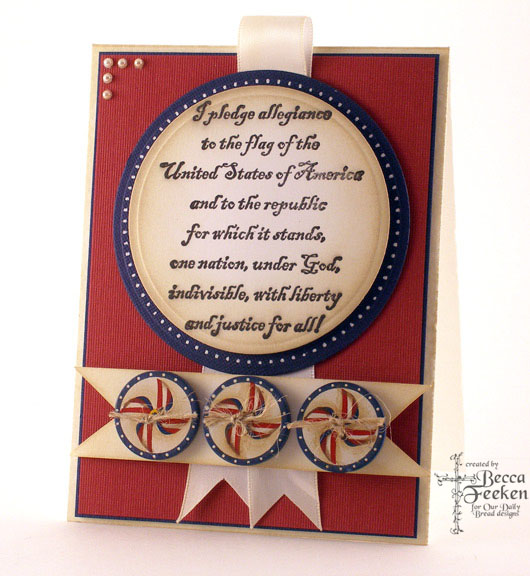 I pledge allegiance
to the flag of the
United States of America
and to the republic
for which it stands,
one nation, under God,
indivisible, with liberty
and justice for all!
created by
Becca
Feeken
for Our Daily
Bread designs